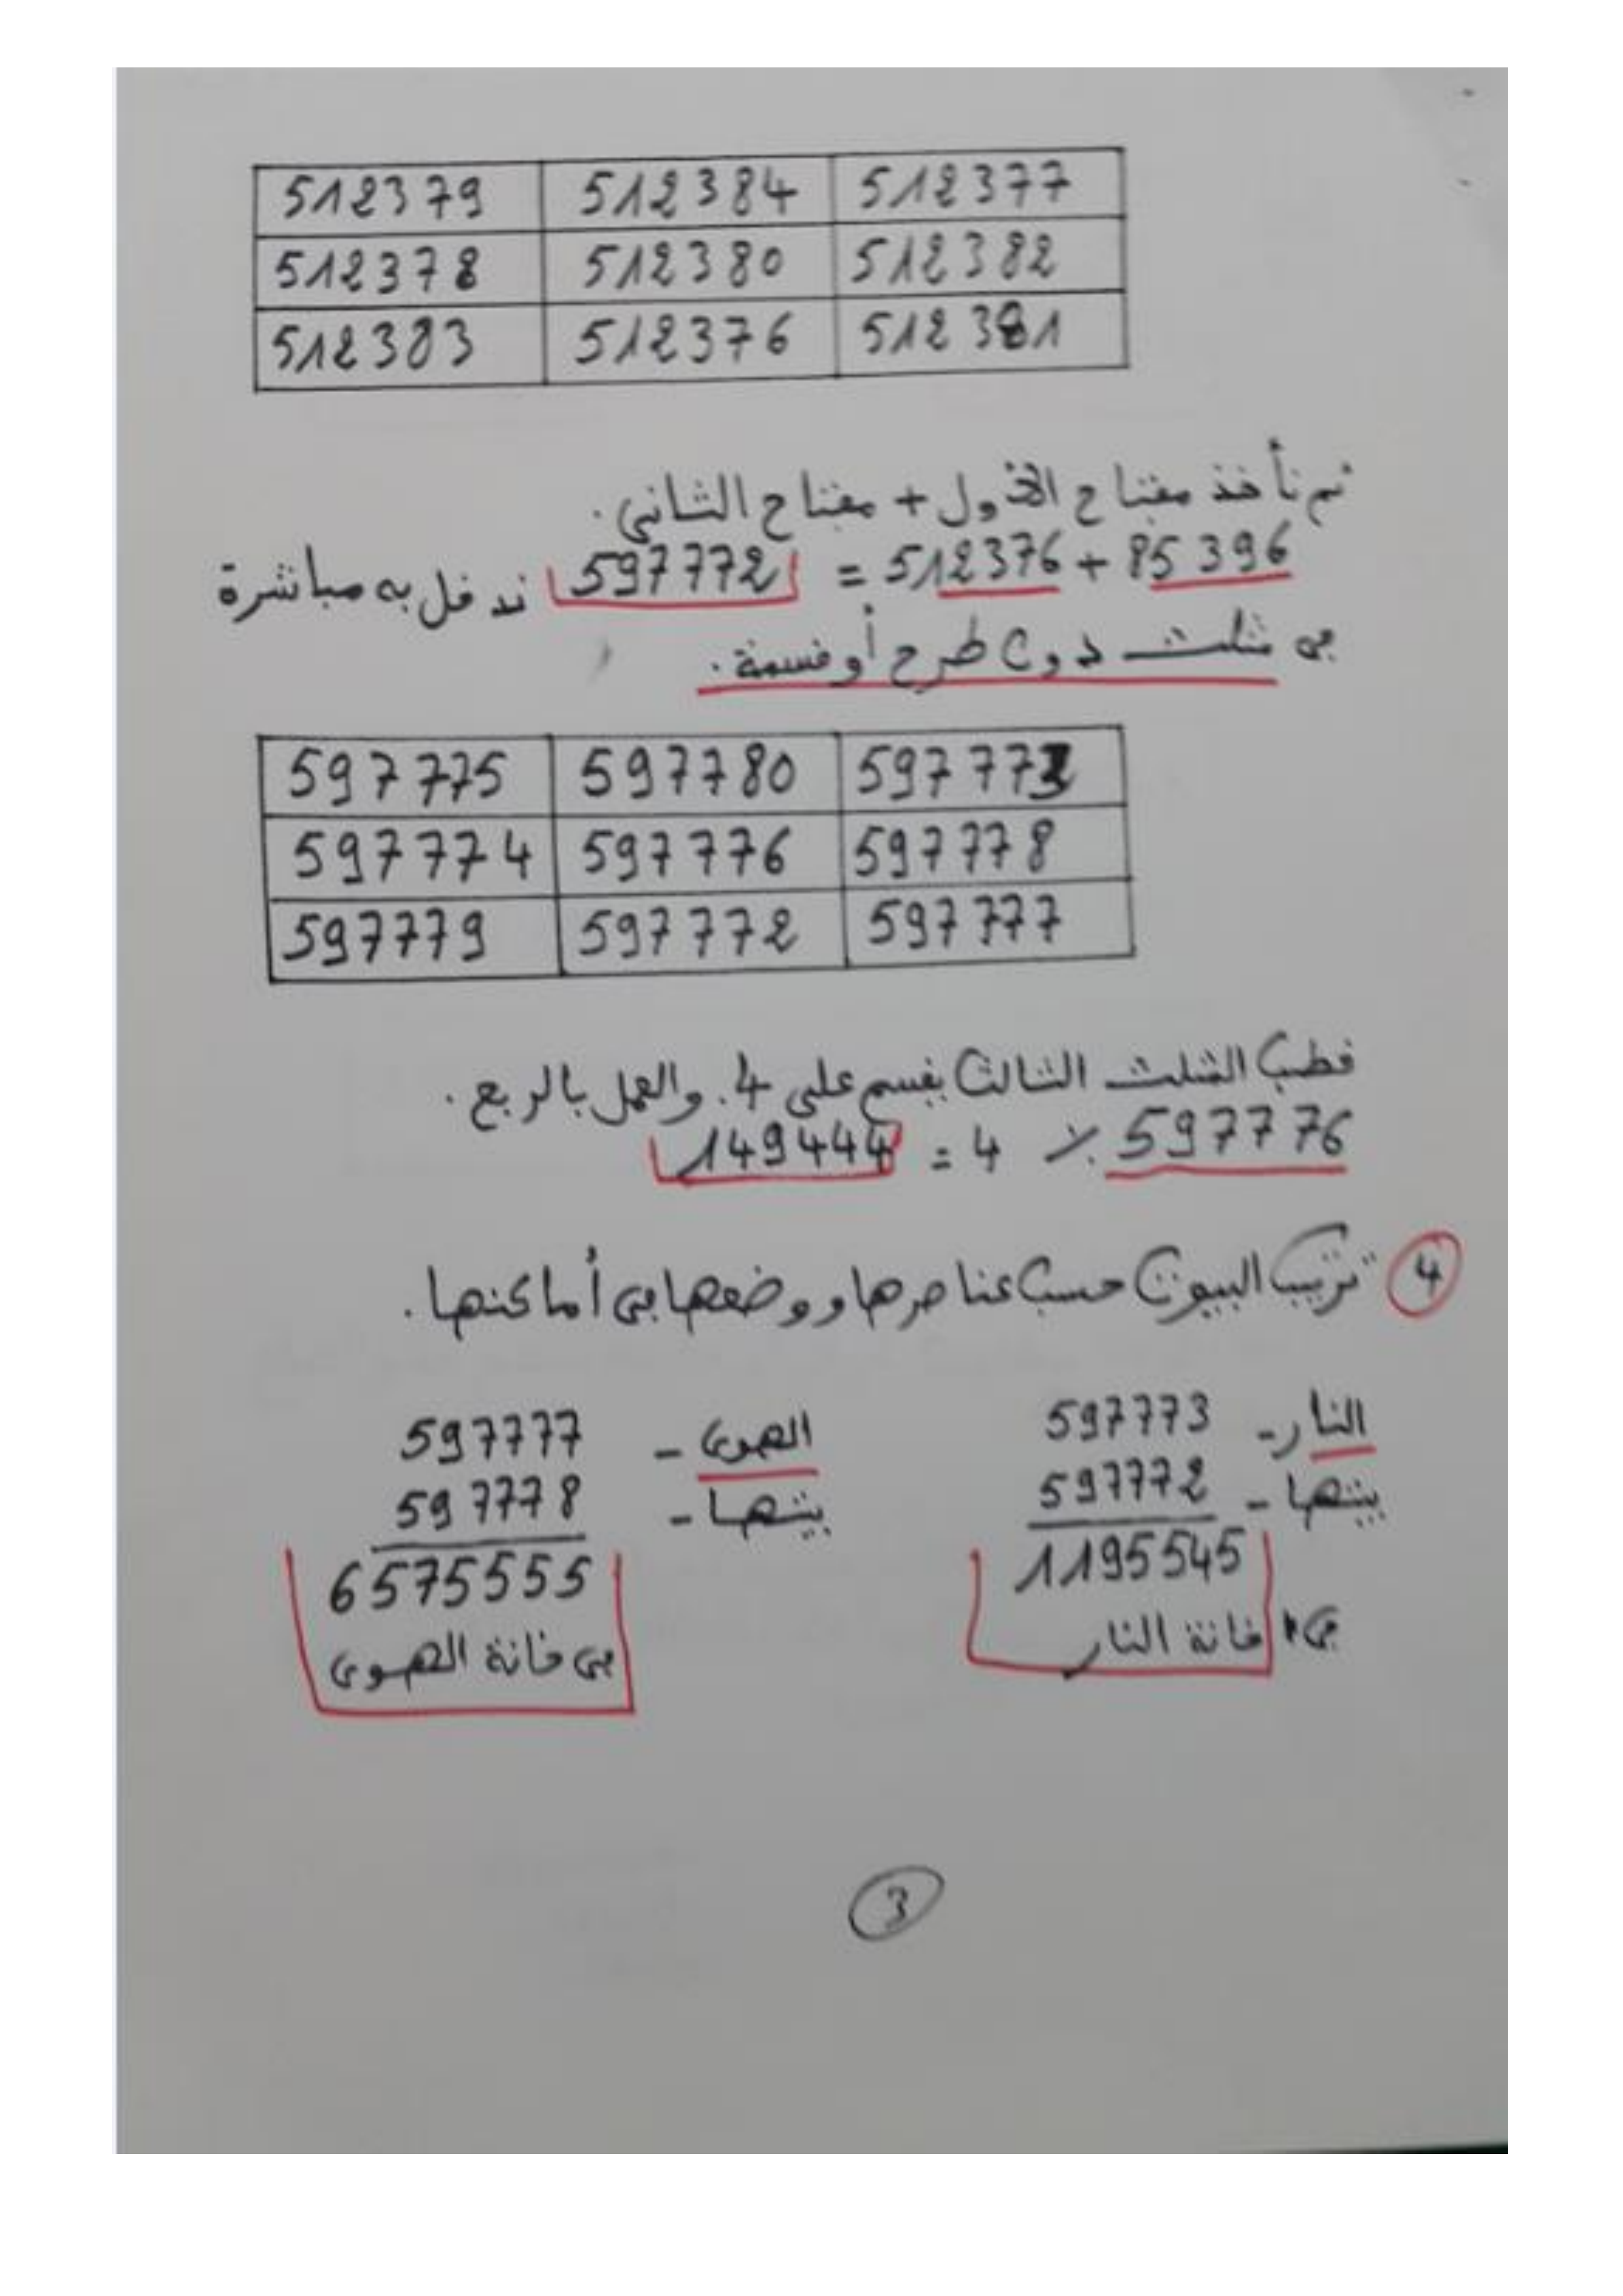 512379 512384 512377
512378 512380 512382
512383 512376 512381
ثم نأخذ مفتاح الأول + مفتاح الثاني.
85396 + 512376 = 597772 ندخل به مباشرة
في مثلث دون طرح أو قسمة.
597775 597780 597773
597774 597776 597778
597779 597772 597777
قطب المثلث الثالث يقسم على 4. والعمل بالربع.
597776 ٪ 4 = 149444
4 ترتيب البيوت حسب عناصرها ووضعها في أماكنها.
النار - 597773
بيتها - 597772
1195545
في خانة النار
الهوى - 597777
بيتها - 597778
6575555
في خانة الهوى
3